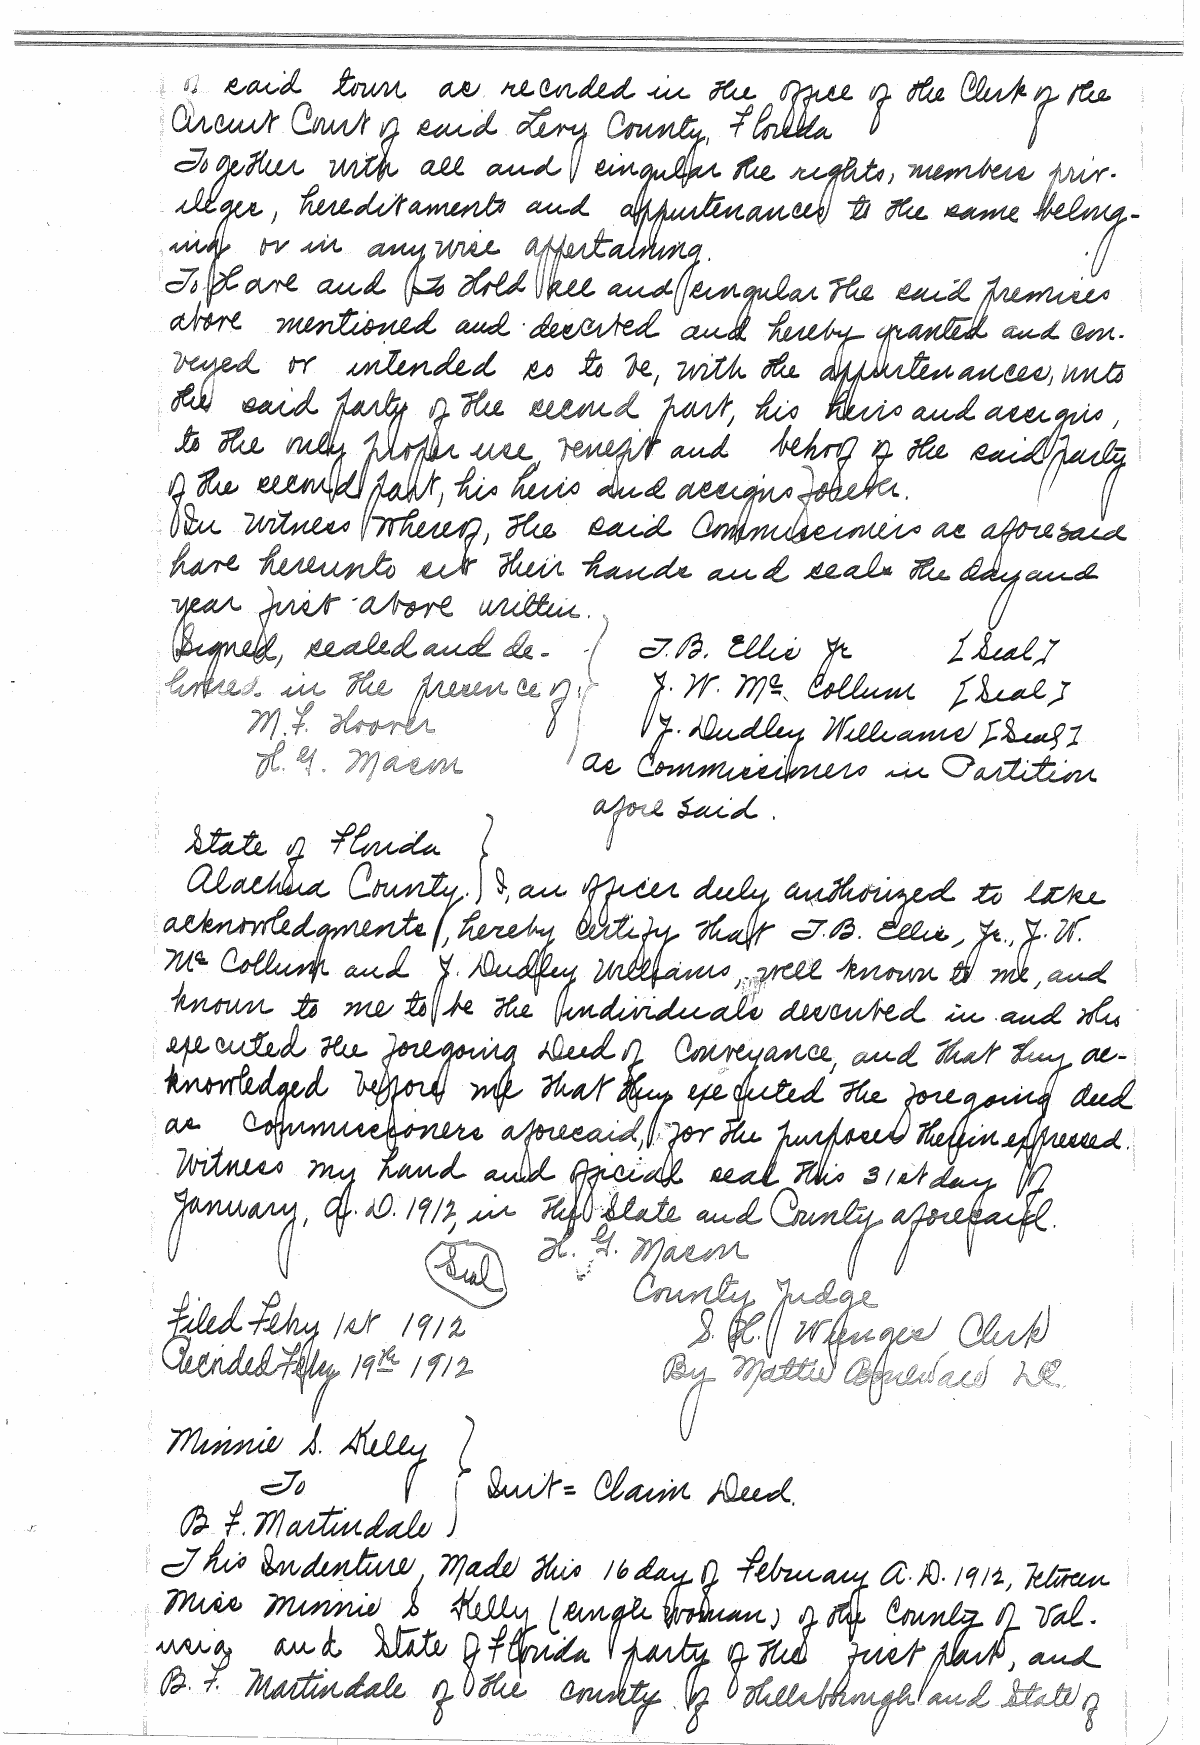 of said town as recorded in the office of the Clerk of the
Circuit Court of said Levy County, Florida
Together with all and singular the rights, members priv-
ileges, hereditaments and appurtenances to the same belong-
ing or in anywise appertaining.
To Have and to Hold all and singular the said premises
above mentioned and described and hereby granted and con-
veyed or intended so to be, with the appurtenances, unto
the said party of the second part, his heirs and assigns,
to the only proper use, benefit and behoof of the said party
of the second part, his heirs and assigns forever.
In Witness Whereof, the said Commissioners as aforesaid
have hereunto set their hands and seals the day and
year first above written.
Signed, sealed and de-
livered in the presence of
M. F. Hoover
H. G. Mason
T. B. Ellis Jr [Seal]
J. W. Mc Collum [Seal]
J. Dudley Williams [Seal]
as Commissioners in Partition
afore said.
State of Florida
Alachua County. I, an officer duly authorized to take
acknowledgments, hereby certify that T. B. Ellis, Jr., J. W.
Mc Collum and J. Dudley Williams, well known to me, and
known to me to be the individuals described in and who
executed the foregoing Deed of Conveyance, and that they ac-
knowledged before me that they executed the foregoing deed
as Commissioners aforesaid, for the purposes therein expressed.
Witness my hand and official seal this 31st day of
January, A. D. 1912, in the State and County aforesaid.
Seal
H. G. Mason
County Judge
Filed Feby 1st 1912
Recorded Feby 19th 1912
S. H. Clerk
By Mattie D.C.
Minnie S. Kelly
To
B. F. Martindale
Quit = Claim Deed.
This Indenture, Made this 16 day of February A. D. 1912, between
Miss Minnie S Kelly (single woman) of the County of Vol-
usia and State of Florida party of the first part, and
B. F. Martindale of the county of Hillsborough and State of